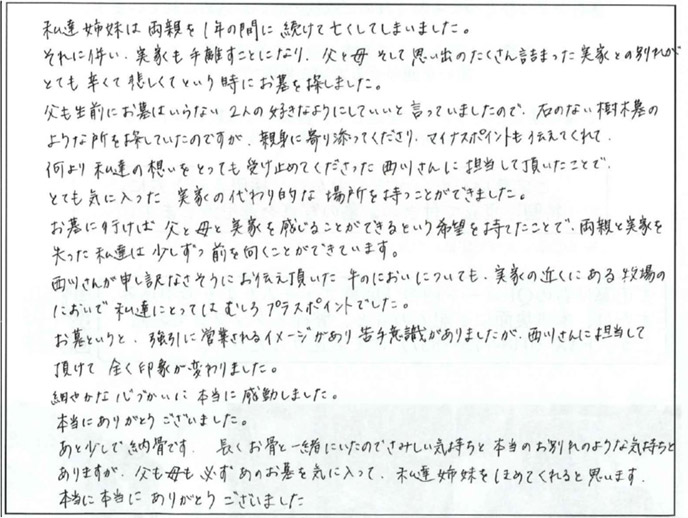 私達姉妹は両親を1年の間に続けて亡くしてしまいました。
それに伴い、実家も手離すことになり、父と母そして思い出のたくさん詰まった実家との別れが
とても辛くて悲しくてという時にお墓を探しました。
父も生前にお墓はいらない2人の好きなようにしていいと言っていましたので、石のない樹木墓の
ような所を探していたのですが、親身に寄り添ってくださり、マイナスポイントも伝えてくれて、
何より私達の想いをとっても受け止めてくださった西川さんに担当して頂いたことで、
とても気に入った実家の代わり的な場所を持つことができました。
お墓に行けば父と母と実家を感じることができるという希望を持てたことで、両親と実家を
失った私達は少しずつ前を向くことができています。
西川さんが申し訳なさそうにお伝え頂いた牛のにおいについても、実家の近くにある牧場の
においで私達にとってはむしろプラスポイントでした。
お墓というと、強引に営業されるイメージがあり苦手意識がありましたが、西川さんに担当して
頂けて全く印象が変わりました。
細やかな心づかいに本当に感動しました。
本当にありがとうございました。
あと少しで納骨です。長くお骨と一緒にいたのでさみしい気持ちと本当のお別れのような気持ちと
ありますが、父も母も必ずあのお墓を気に入って、私達姉妹をほめてくれると思います。
本当に本当にありがとうございました